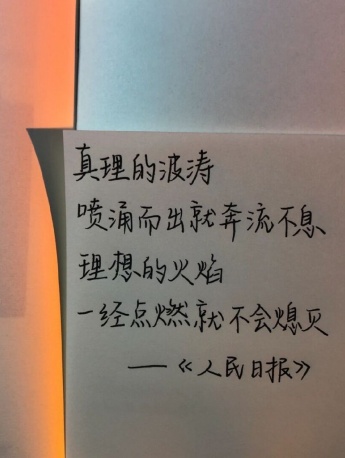 真理的波涛
喷涌而出就奔流不息
理想的火焰
一经点燃就不会熄灭
——《人民日报》